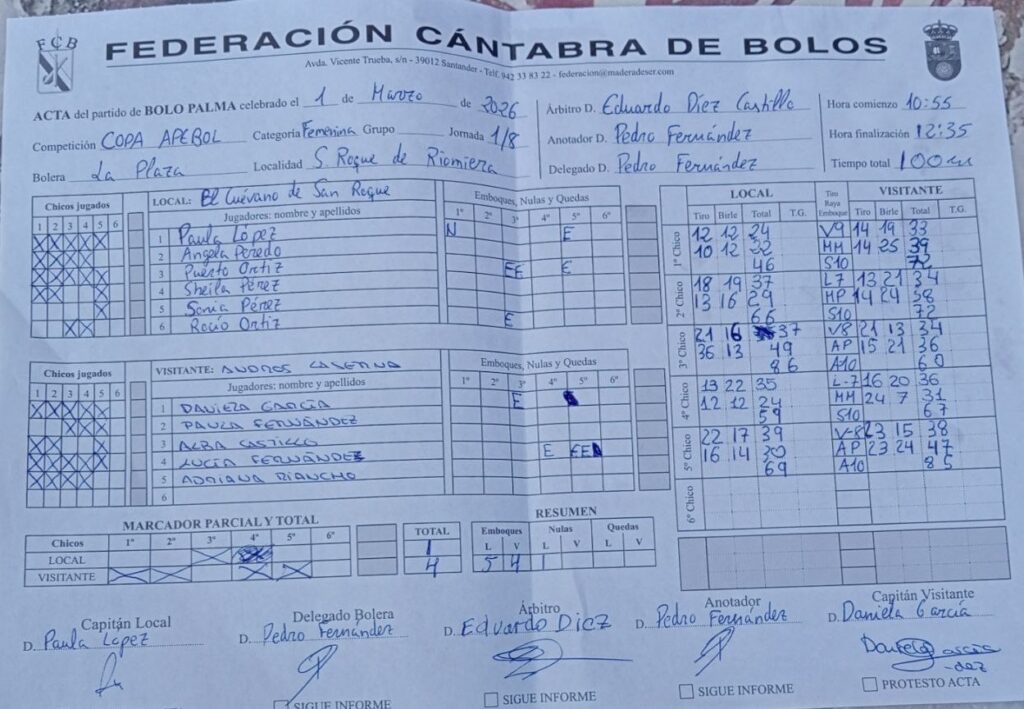 FCB
FEDERACIÓN CÁNTABRA DE BOLOS
Avda. Vicente Trueba, s/n - 39012 Santander - Telf. 942 33 83 22 - federacion@maderadeser.com
ACTA del partido de BOLO PALMA celebrado el 1 de Marzo de 2026
Competición COPA APEBOL Categoría Femenina Grupo Jornada 1/8
Bolera La Plaza Localidad S. Roque de Riomiera
Árbitro D. Eduardo Díez Castillo
Anotador D. Pedro Fernández
Delegado D. Pedro Fernández
Hora comienzo 10:55
Hora finalización 12:35
Tiempo total 100 m
Chicos jugados
1 2 3 4 5 6
LOCAL: El Cuévano de San Roque
Jugadores: nombre y apellidos
Emboques, Nulas y Quedas
1º 2º 3º 4º 5º 6º
1 Paula López N E
2 Angela Peredo
3 Puerto Ortiz EE E
4 Sheila Pérez
5 Sonia Pérez
6 Rocío Ortiz E
Chicos jugados
1 2 3 4 5 6
VISITANTE: ANDROS LA SERNA
Jugadores: nombre y apellidos
Emboques, Nulas y Quedas
1º 2º 3º 4º 5º 6º
1 DANIELA GARCÍA E
2 PAULA FERNÁNDEZ
3 ALBA CASTILLO
4 LUCÍA FERNÁNDEZ E EE
5 ADRIANA RIANCHO
6
LOCAL Tiro Raya Emboque VISITANTE
Tiro Birle Total T.G. Tiro Birle Total T.G.
1º Chico
12 12 24 V9 14 19 33
10 12 32 MM 14 25 39
46 S10 72
2º Chico
18 19 37 L7 13 21 34
13 16 29 MP 14 24 38
66 S10 72
3º Chico
21 16 37 V8 21 13 34
36 13 49 AP 15 21 36
86 A10 60
4º Chico
13 22 35 L-7 16 20 36
12 12 24 MM 24 7 31
59 S10 67
5º Chico
22 17 39 V-8 23 15 38
16 14 30 AP 23 24 47
69 A10 85
6º Chico
MARCADOR PARCIAL Y TOTAL
Chicos 1º 2º 3º 4º 5º 6º TOTAL
LOCAL 1
VISITANTE 4
RESUMEN
Emboques Nulas Quedas
L V L V L V
5 4 1
Capitán Local
D. Paula López
Delegado Bolera
D. Pedro Fernández
Árbitro
D. Eduardo Díez
Anotador
D. Pedro Fernández
Capitán Visitante
D. Daniela García
SIGUE INFORME
SIGUE INFORME
SIGUE INFORME
PROTESTO ACTA